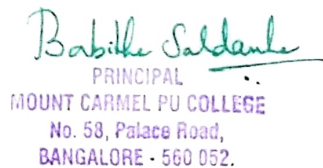 Babitha Saldanha
PRINCIPAL
MOUNT CARMEL PU COLLEGE
No. 58, Palace Road,
BANGALORE - 560 052.